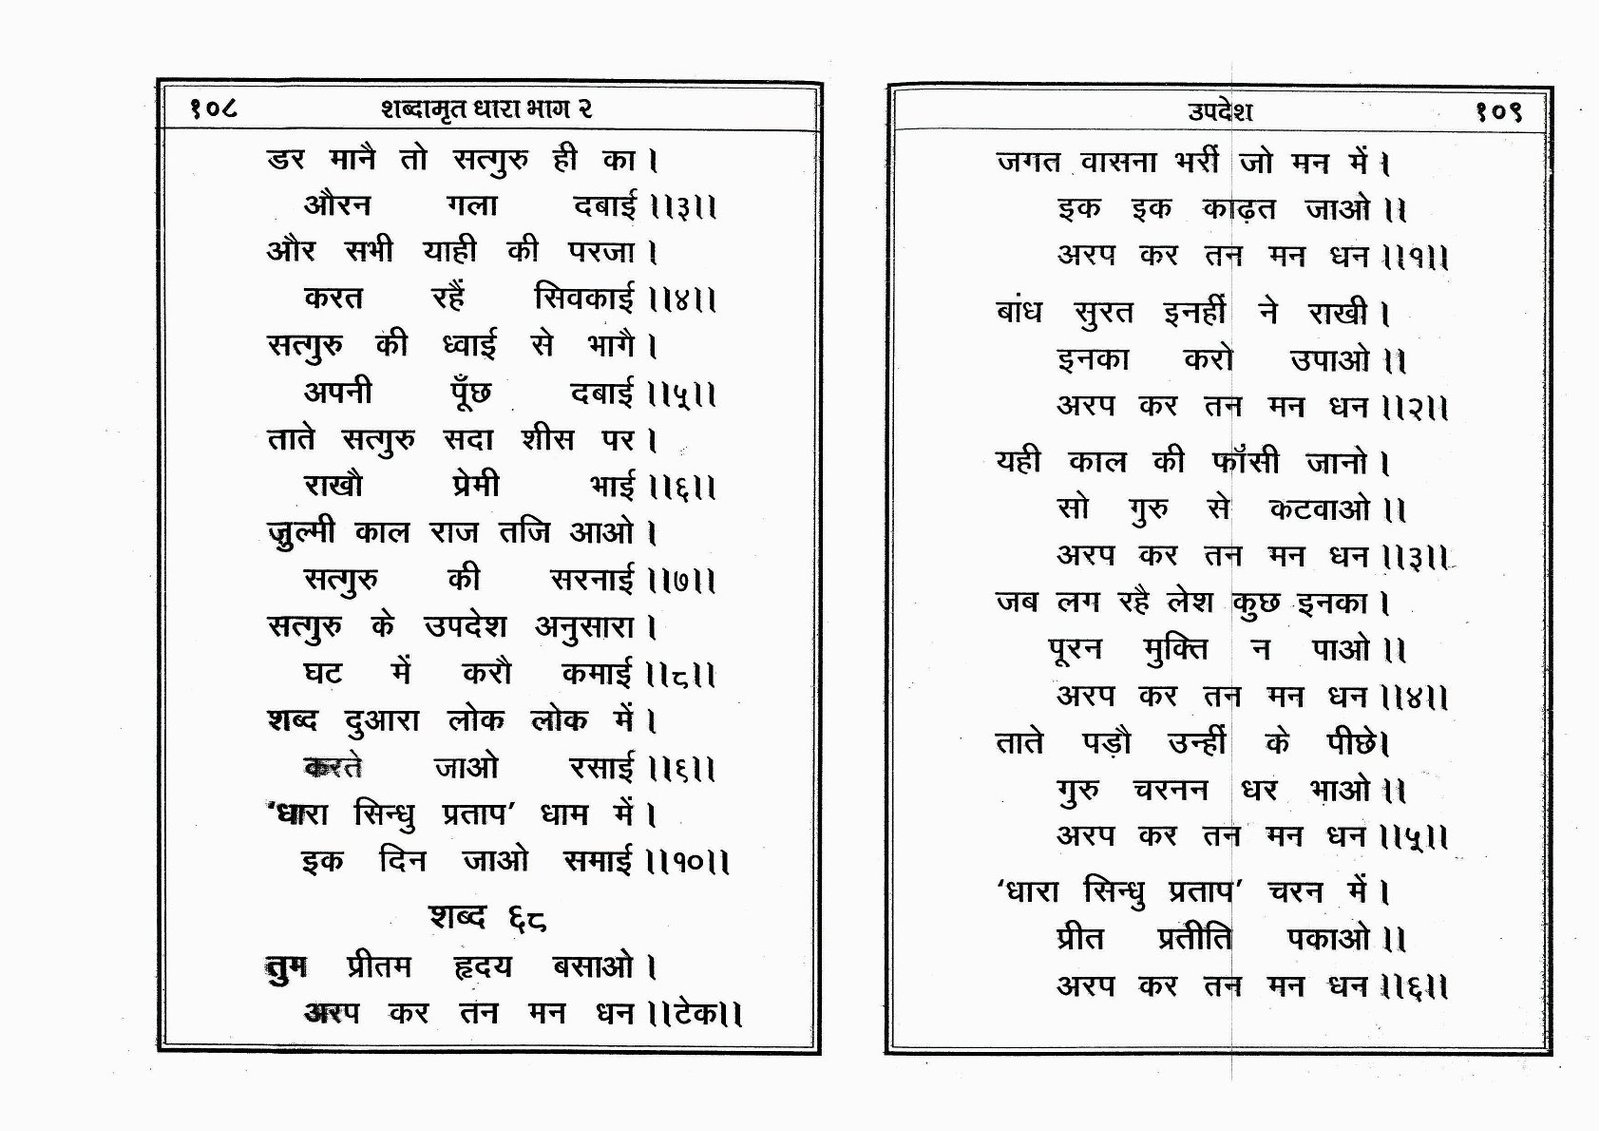 १०८ शब्दामृत धारा भाग २
डर मानै तो सत्गुरु ही का ।
औरन गला दबाई ।।३।।
और सभी याही की परजा ।
करत रहैं सिवकाई ।।४।।
सत्गुरु की ध्वाई से भागै ।
अपनी पूँछ दबाई ।।५।।
ताते सत्गुरु सदा शीस पर ।
राखौ प्रेमी भाई ।।६।।
जुल्मी काल राज तजि आओ ।
सत्गुरु की सरनाई ।।७।।
सत्गुरु के उपदेश अनुसारा ।
घट में करौ कमाई ।।८।।
शब्द दुआरा लोक लोक में ।
करते जाओ रसाई ।।९।।
‘धारा सिन्धु प्रताप’ धाम में ।
इक दिन जाओ समाई ।।१०।।
शब्द ६८
तुम प्रीतम हृदय बसाओ ।
अरप कर तन मन धन ।।टेक।।
उपदेश १०९
जगत वासना भरीं जो मन में ।
इक इक काढ़त जाओ ।।
अरप कर तन मन धन ।।१।।
बांध सुरत इनहीं ने राखी ।
इनका करो उपाओ ।।
अरप कर तन मन धन ।।२।।
यही काल की फाँसी जानो ।
सो गुरु से कटवाओ ।।
अरप कर तन मन धन ।।३।।
जब लग रहै लेश कुछ इनका ।
पूरन मुक्ति न पाओ ।।
अरप कर तन मन धन ।।४।।
ताते पड़ौ उन्हीं के पीछे।
गुरु चरनन धर भाओ ।।
अरप कर तन मन धन ।।५।।
‘धारा सिन्धु प्रताप’ चरन में ।
प्रीत प्रतीति पकाओ ।।
अरप कर तन मन धन ।।६।।